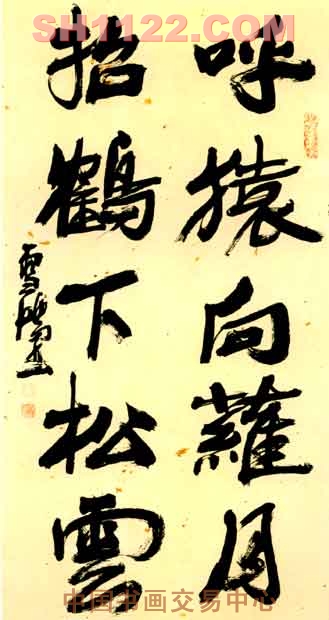 SH1122.COM
呼猿向蘿月
招鶴下松雲
中国书画交易中心